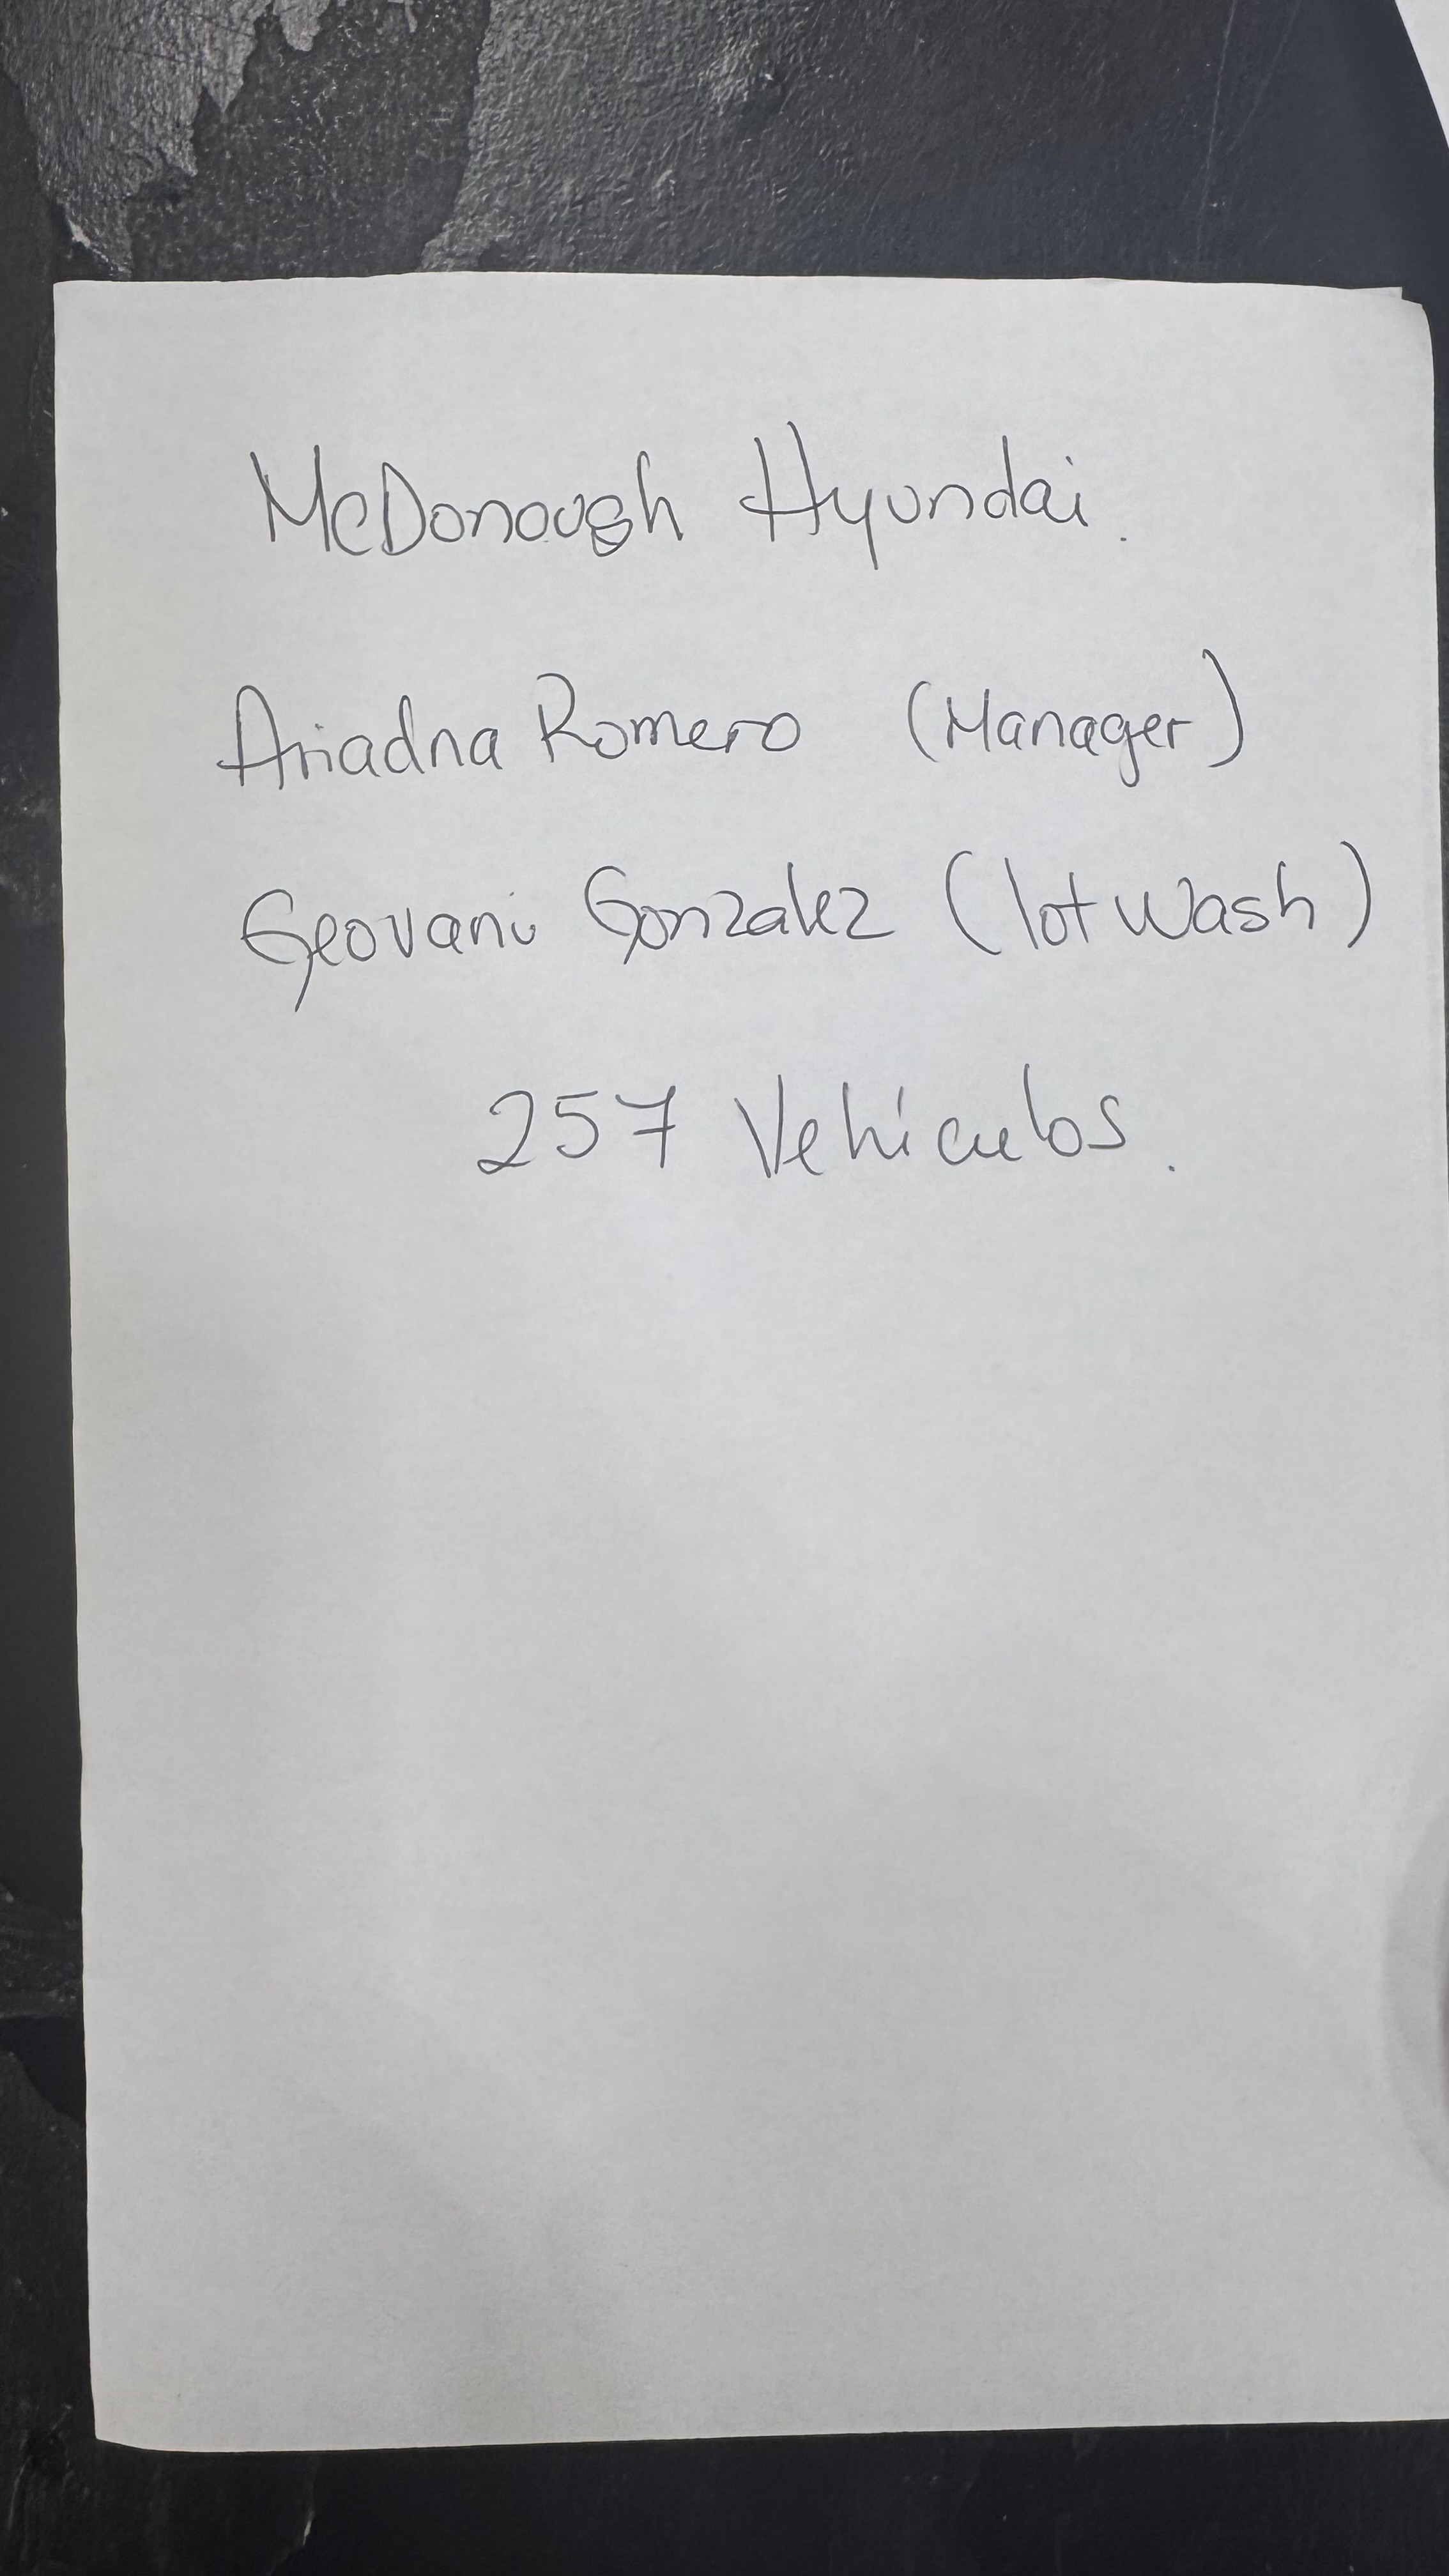 McDonough Hyundai.
Ariadna Romero (Manager)
Geovani Gonzalez (lot wash)
257 Vehiculos.